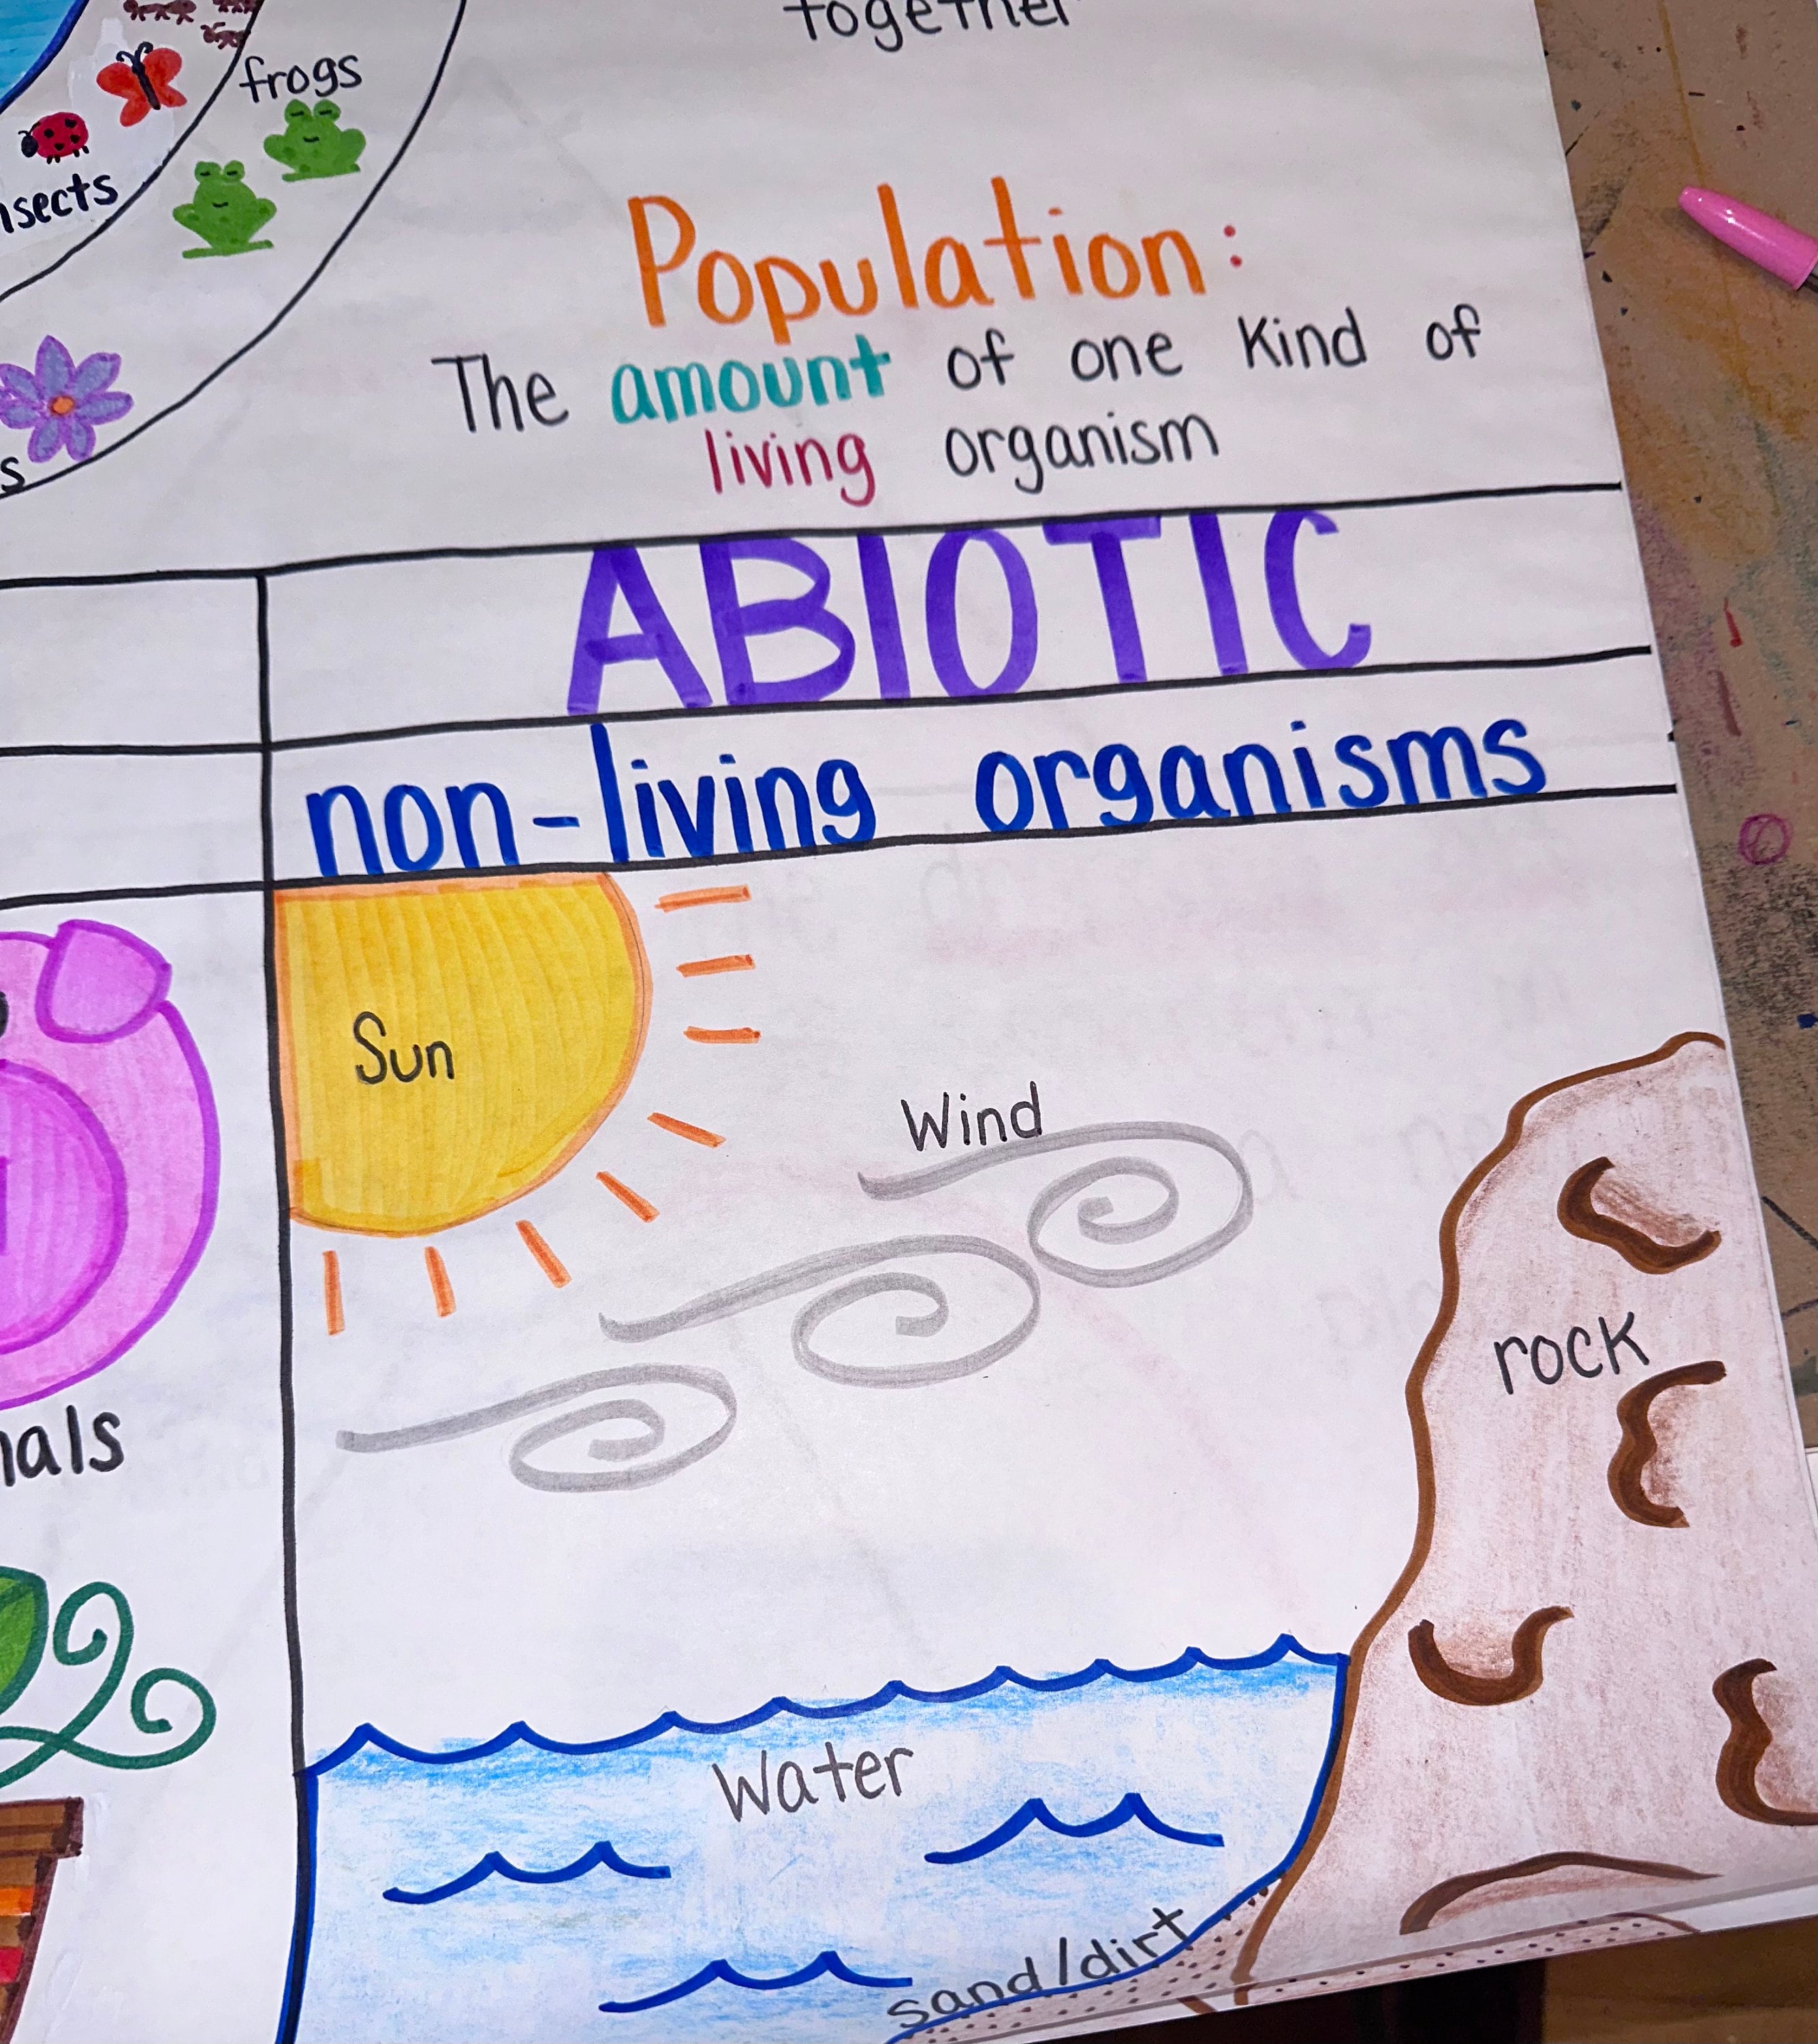 together
frogs
nsects
Population:
The amount of one kind of
living organism
s
ABIOTIC
non-living organisms
Sun
Wind
rock
nals
Water
sand/dirt